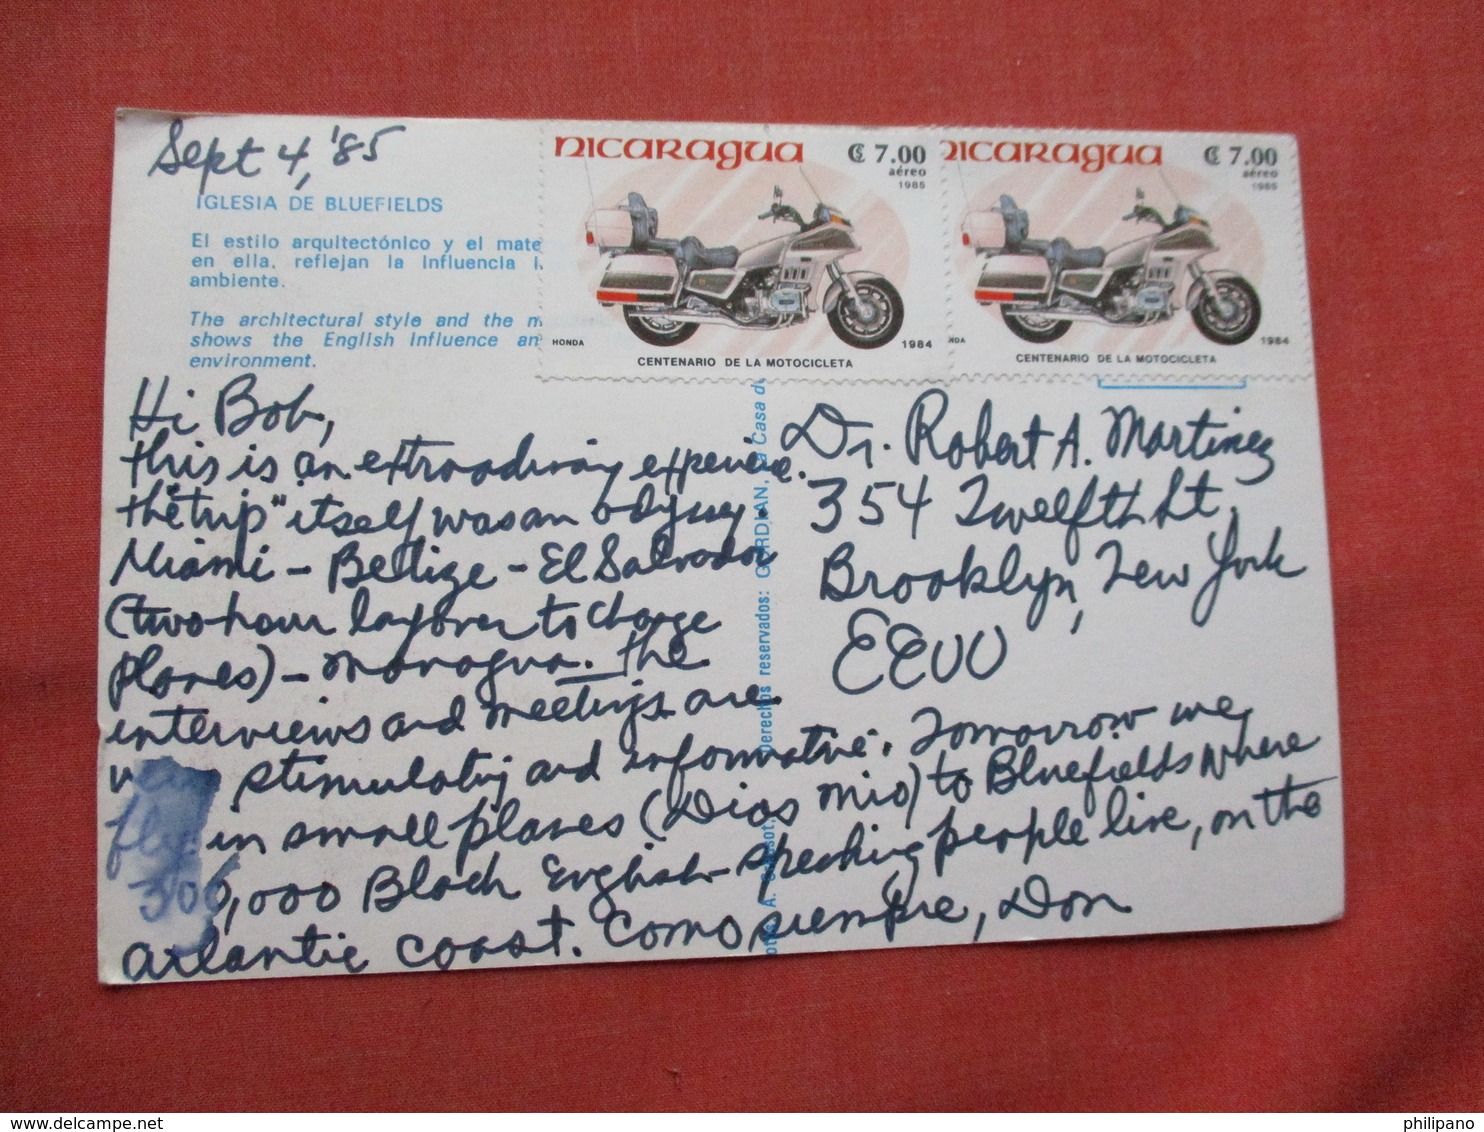 Sept 4, '85
IGLESIA DE BLUEFIELDS
El estilo arquitectónico y el mate
en ella, reflejan la influencia
ambiente.
The architectural style and the m
shows the English influence an
environment.
NICARAGUA C$ 7.00
aéreo
1985
HONDA 1984
CENTENARIO DE LA MOTOCICLETA
NICARAGUA C$ 7.00
aéreo
1985
NDA 1984
CENTENARIO DE LA MOTOCICLETA
Hi Bob,
this is an extraordinary experience.
the "trip" itself was an odyssey.
Miami - Belize - El Salvador
(two-hour layover to change
planes) - Managua. The
interviews and meetings are
very stimulating and informative. Tomorrow we
fly in small planes (Dios mio) to Bluefields where
300,000 Black English-speaking people live, on the
atlantic coast. Como siempre, Don
Dr. Robert A. Martinez
354 Twelfth St.
Brooklyn, New York
EEUU
Derechos reservados: GURDIAN, La Casa de
philipano